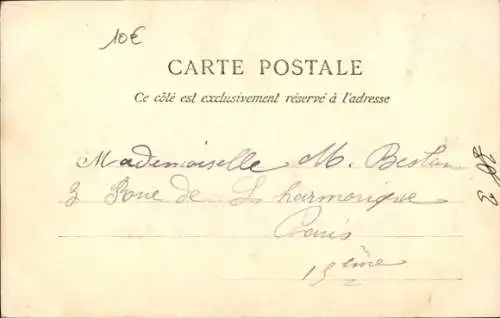 10€
CARTE POSTALE
Ce côté est exclusivement réservé à l'adresse
Mademoiselle M.
3 Rue de L harmonique
Paris
15 ème